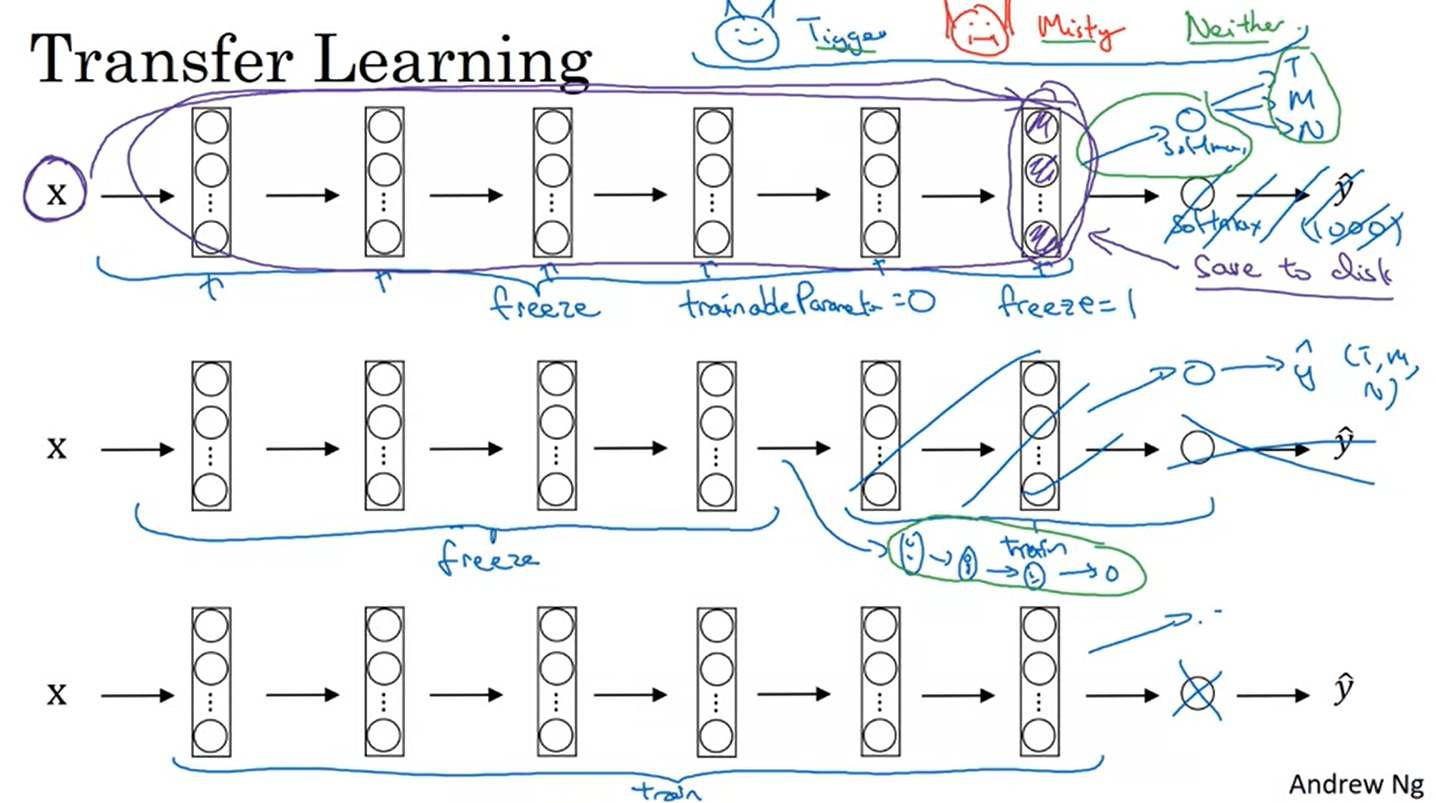 Transfer Learning
Tigger Misty Neither
T
M
N
softmax
x
ŷ
softmax (1000)
save to disk
freeze trainableParameter = 0 freeze = 1
ŷ (T, M, N)
x
ŷ
freeze
train
x
ŷ
train
Andrew Ng